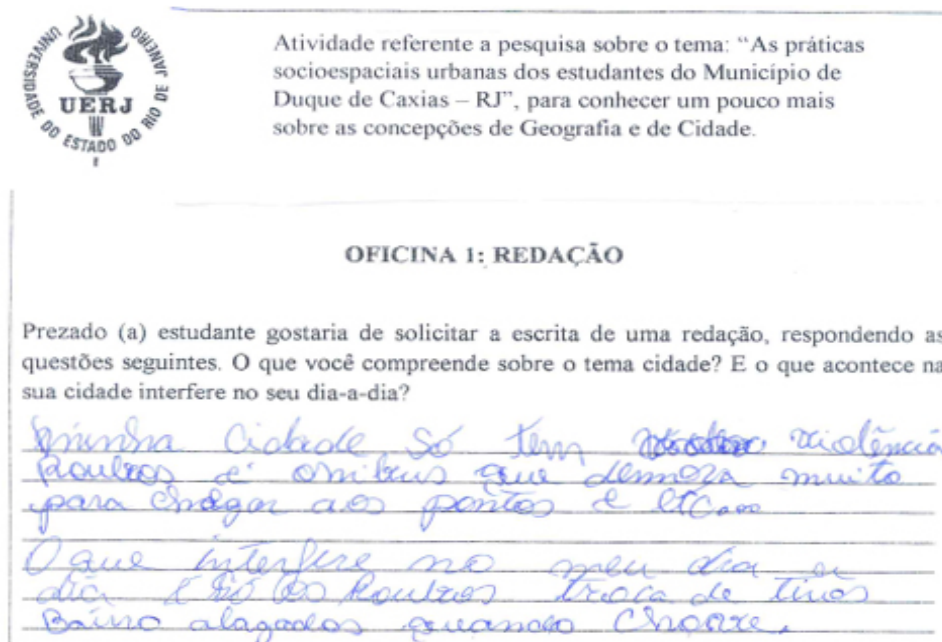 UNIVERSIDADE DO ESTADO DO RIO DE JANEIRO
UERJ
Atividade referente a pesquisa sobre o tema: “As práticas
socioespaciais urbanas dos estudantes do Município de
Duque de Caxias – RJ”, para conhecer um pouco mais
sobre as concepções de Geografia e de Cidade.
OFICINA 1: REDAÇÃO
Prezado (a) estudante gostaria de solicitar a escrita de uma redação, respondendo as
questões seguintes. O que você compreende sobre o tema cidade? E o que acontece na
sua cidade interfere no seu dia-a-dia?
minha Cidade Só tem violência
Roubos e onibus que demora muito
para chegar aos pontos e etc...
O que interfere no meu dia a
dia é Só os Roubos troca de tiros
Bairro alagados quando Chove.